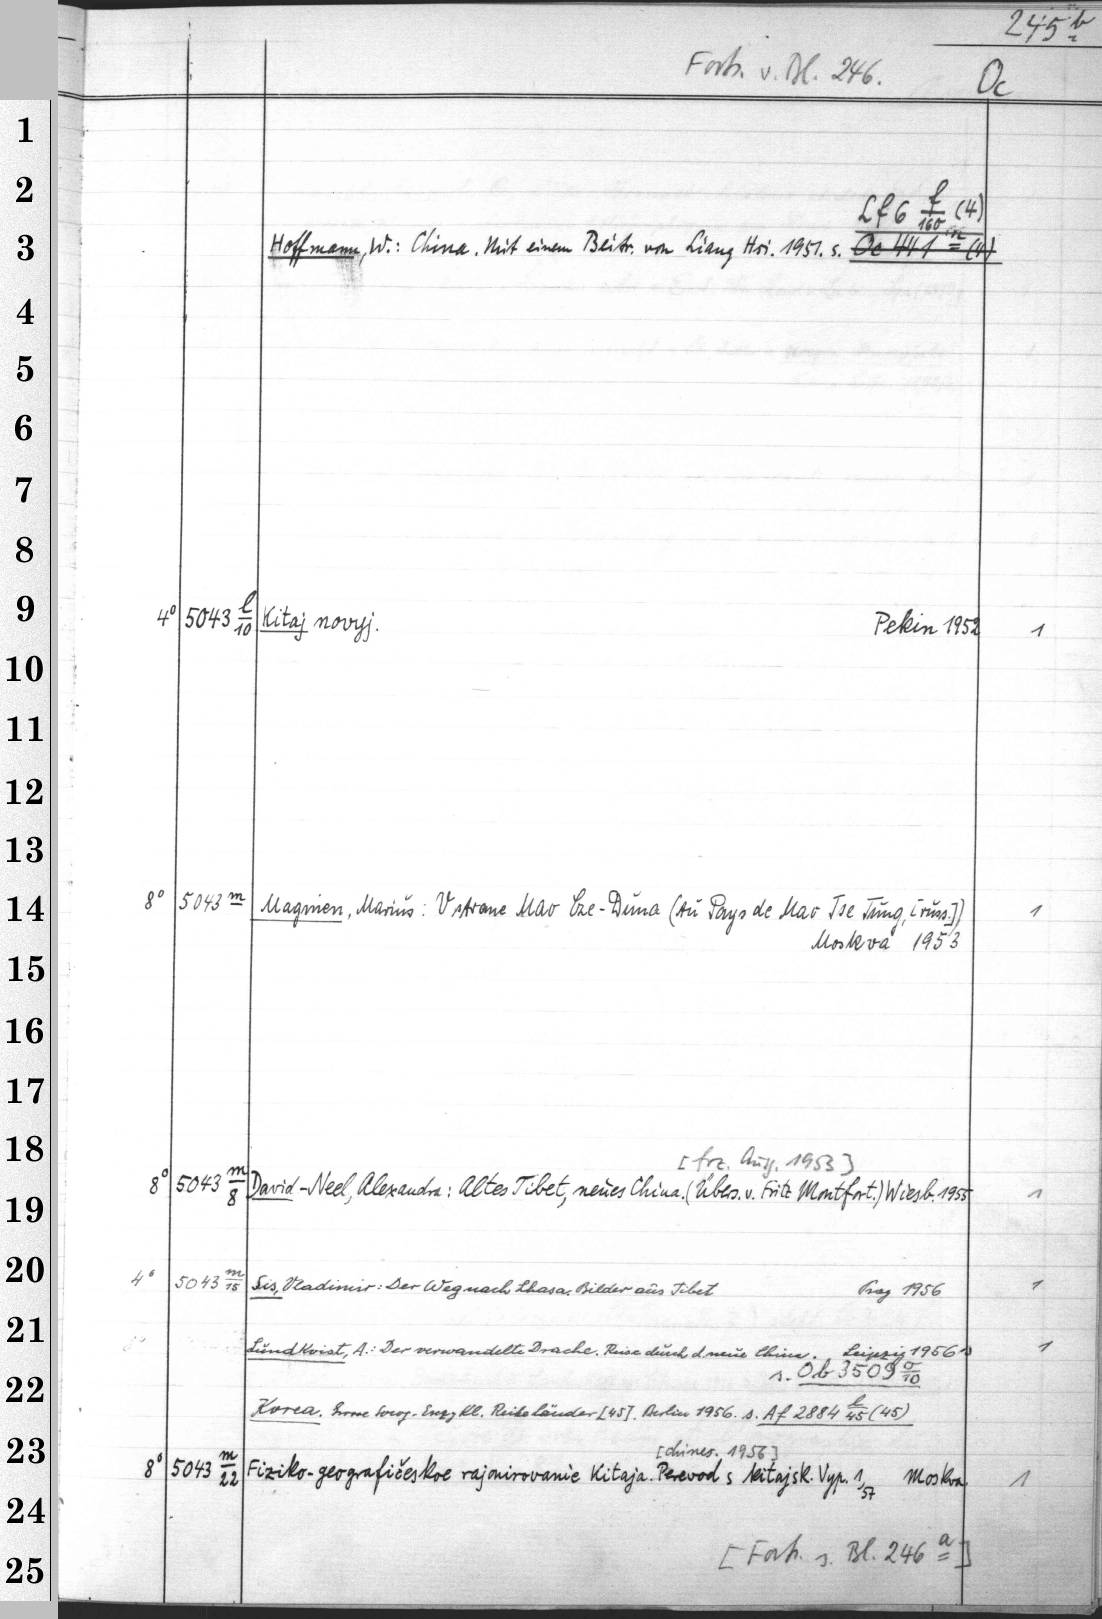 245 b
Forts. v. Bl. 246.
Oc
1
2
Lf 6 f/160 (4)
3 Hoffmann, W.: China. Mit einem Beitr. von Liang Hsi. 1951. s. Oc 441 n (4)
4
5
6
7
8
9 4° 5043 l/10 Kitaj novyj. Pekin 1952 1
10
11
12
13
14 8° 5043 m Magnien, Marius: V strane Mao Cze-Duna (Au Pays de Mao Tse Tung, [russ.]) 1
Moskva 1953
15
16
17
18 [frz. Ausg. 1953]
8° 5043 m/8 David-Neel, Alexandra: Altes Tibet, neues China. (Übers. v. Fritz Montfort.) Wiesb. 1955 1
19
20 4° 5043 m/15 Sis, Vladimir: Der Weg nach Lhasa. Bilder aus Tibet Prag 1956 1
21 Lundkvist, A.: Der verwandelte Drache. Reise durch d. neue China. Leipzig 1956 1
s. Ob 3509 o/10
22 Korea. Enzykl. [45]. Berlin 1956. s. Af 2884 l/45 (45)
23 [chines. 1956]
8° 5043 m/22 Fiziko-geografičeskoe rajonirovanie Kitaja. Perevod s kitajsk. Vyp. 1, 57 Moskva 1
24
[Forts. s. Bl. 246 a]
25